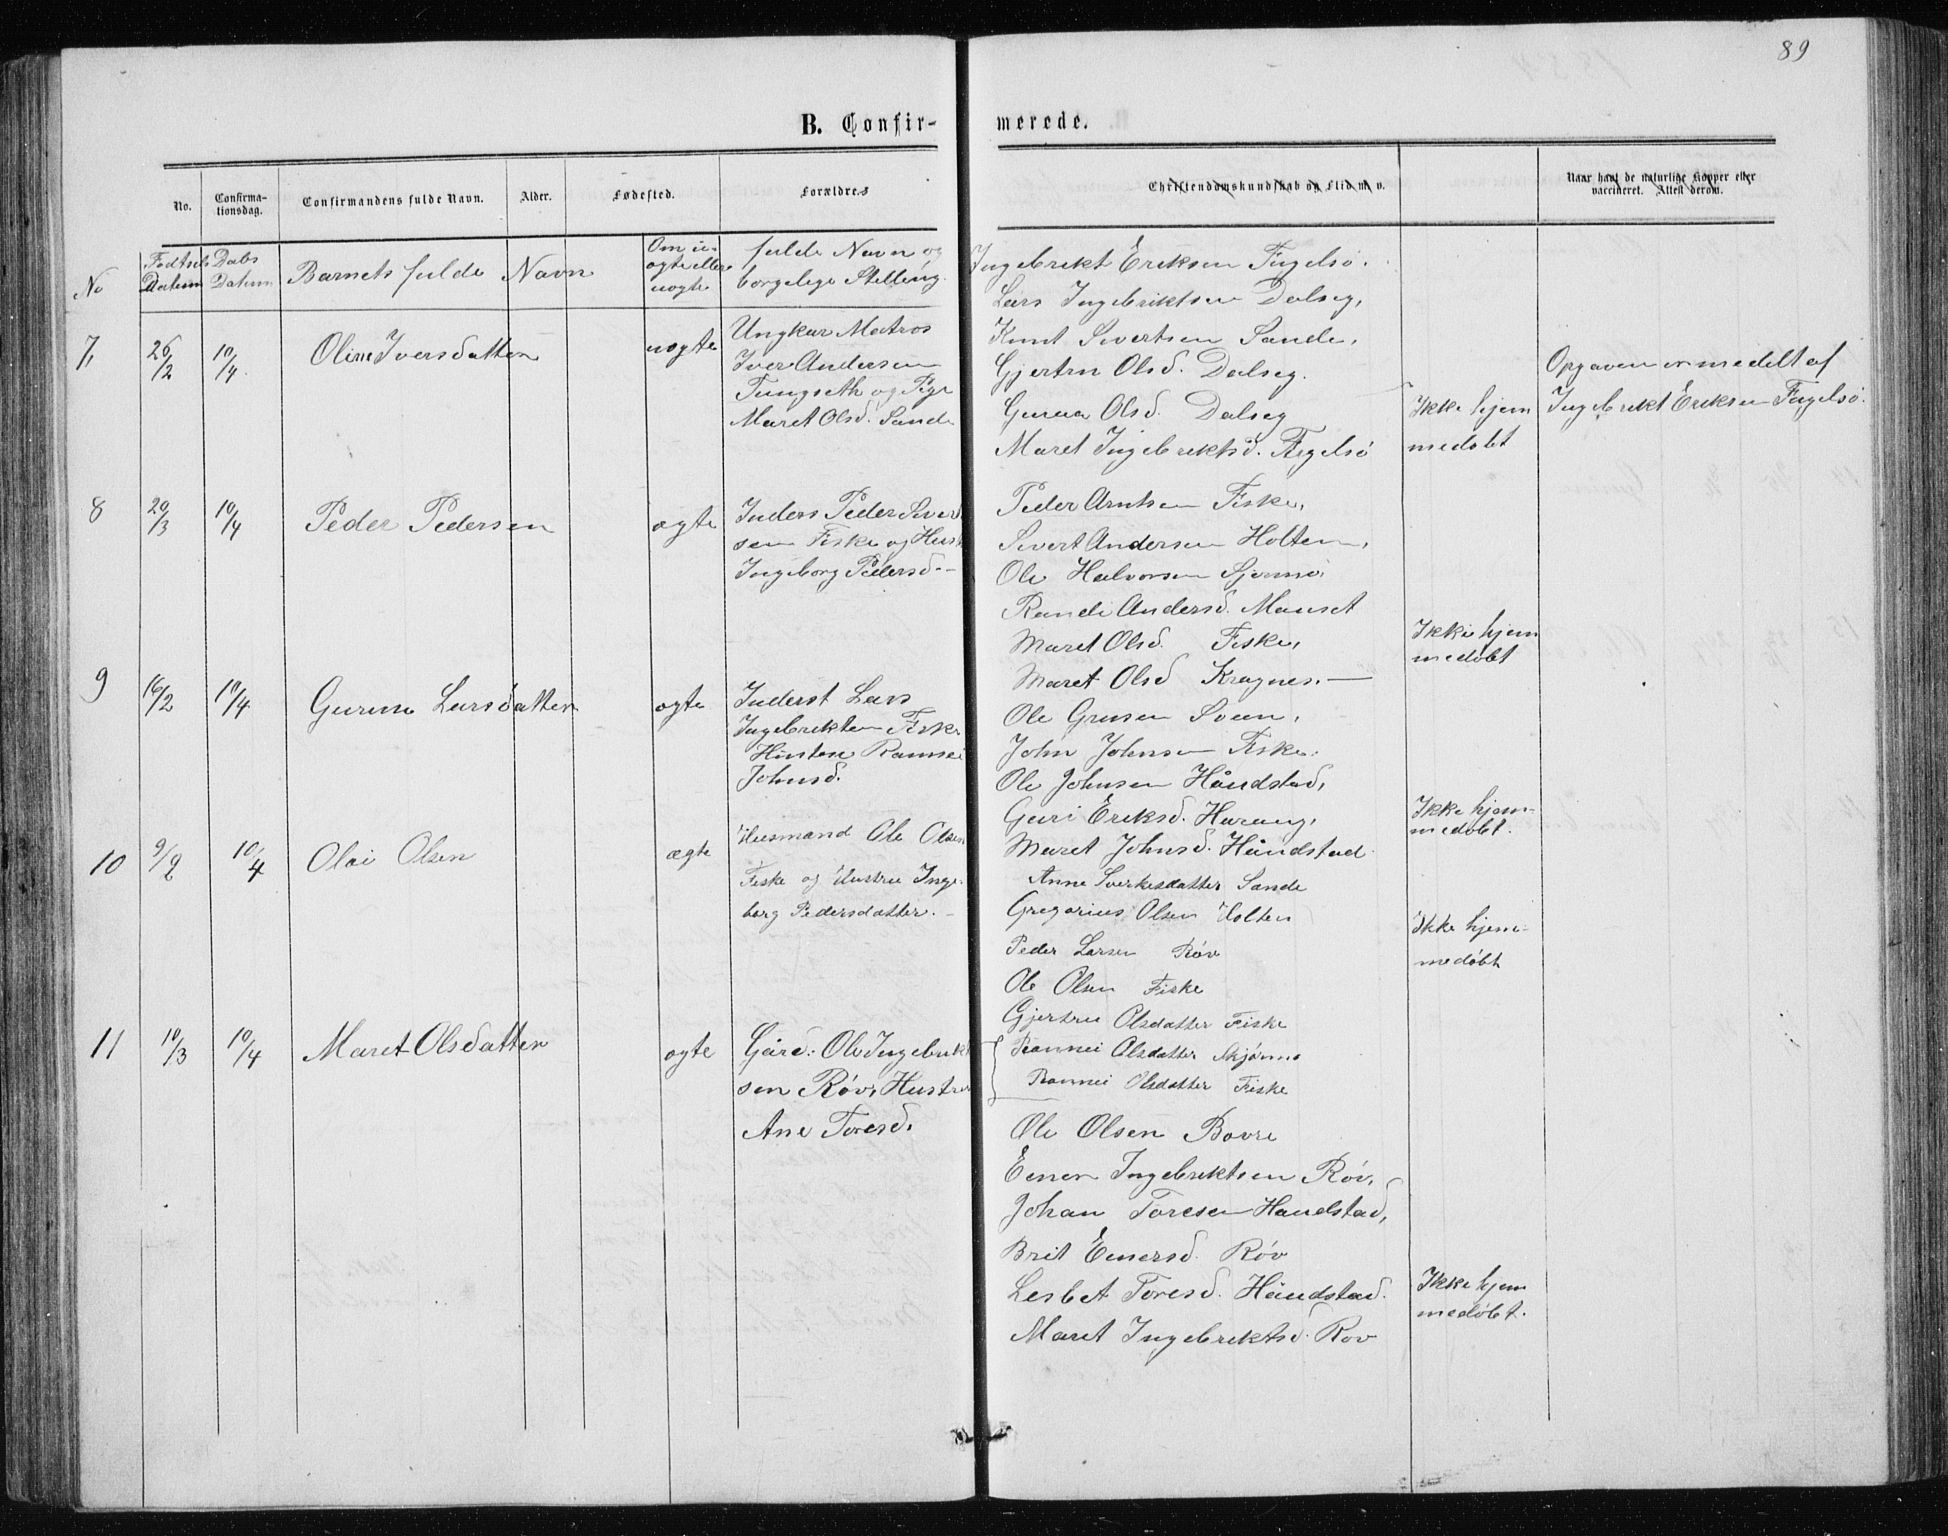 89
B. Confir-
merede.
No.
Confirma-
tionsdag.
Confirmandens fulde Navn.
Alder.
Fødested.
Forældres
Christendomskundskab og Flid m. v.
Naar havt de naturlige Kopper eller
vaccineret. Attest derom.
No
Fødtsels
Datum
Dabs
Datum
Barnets fulde Navn
Om
ægte eller
uægte
fulde Navn og
borgelige Stilling.
7,
26/2
10/4
Oline Iversdatter
uægte
Ungkar Matros
Iver Andersen
Tungseth og Pige
Maret Olsd. Sande
Ingebrikt Eriksen Fugelsø.
Lars Ingebriktsen Dalseg,
Knut Sivertsen Sande,
Gjertru Olsd. Dalseg.
Gurua Olsd. Dalseg
Maret Ingebriktsd. Fugelsø
Ikke hjem
medøbt
Opgaven er medelt af
Ingebrikt Eriksen Fugelsø.
8
20/3
10/4
Peder Pedersen
ægte
Inders Peder Siverd
sen Fiske og Hust
Ingeborg Pedersd.-
Peder Arntsen Fiske,
Sivert Andersen Holten,
Ole Halvorsen Sjermo,
Randi Andersd. Mauset
Maret Olsd. Fiske,
Maret Olsd Kragnes.
Ikke hjem
medøbt
9
16/2
10/4
Gurine Larsdatter
ægte
Inderst Lars
Ingebrikten Fiske
Hustue Rannei
Johnsd.
Ole Grusen Sveen,
John Johnsen Fiske.
Ole Johnsen Håndstad,
Guri Eriksd. Harang,
Maret Johnsd. Håndstad.
Anne Sverkesdatter Sande
Ikke hjem-
medøbt.
10
9/2
10/4
Olai Olsen
ægte
Husmand Ole Olsen
Fiske og Hustru Inge-
borg Pedersdatter.-
Gregorius Olsen Holten
Peder Larsen Røv
Ole Olsen Fiske
Gjertru Olsdatter Fiske
Rannei Olsdatter Skjørmo
Rannei Olsdatter Fiske
Ikke hjem-
medøbt
11
10/3
10/4
Maret Olsdatter
ægte
Gård: Ole Ingebrikt
sen Røv, Hustru
Ane Toresd.
Ole Olsen Bovre
Einer Ingebriktsen Røv,
Johan Toresen Handstad,
Brit Einersd. Røv
Lesbet Toresd. Håndstad.
Maret Ingebriktsd. Røv
Ikke hjem
medøbt.